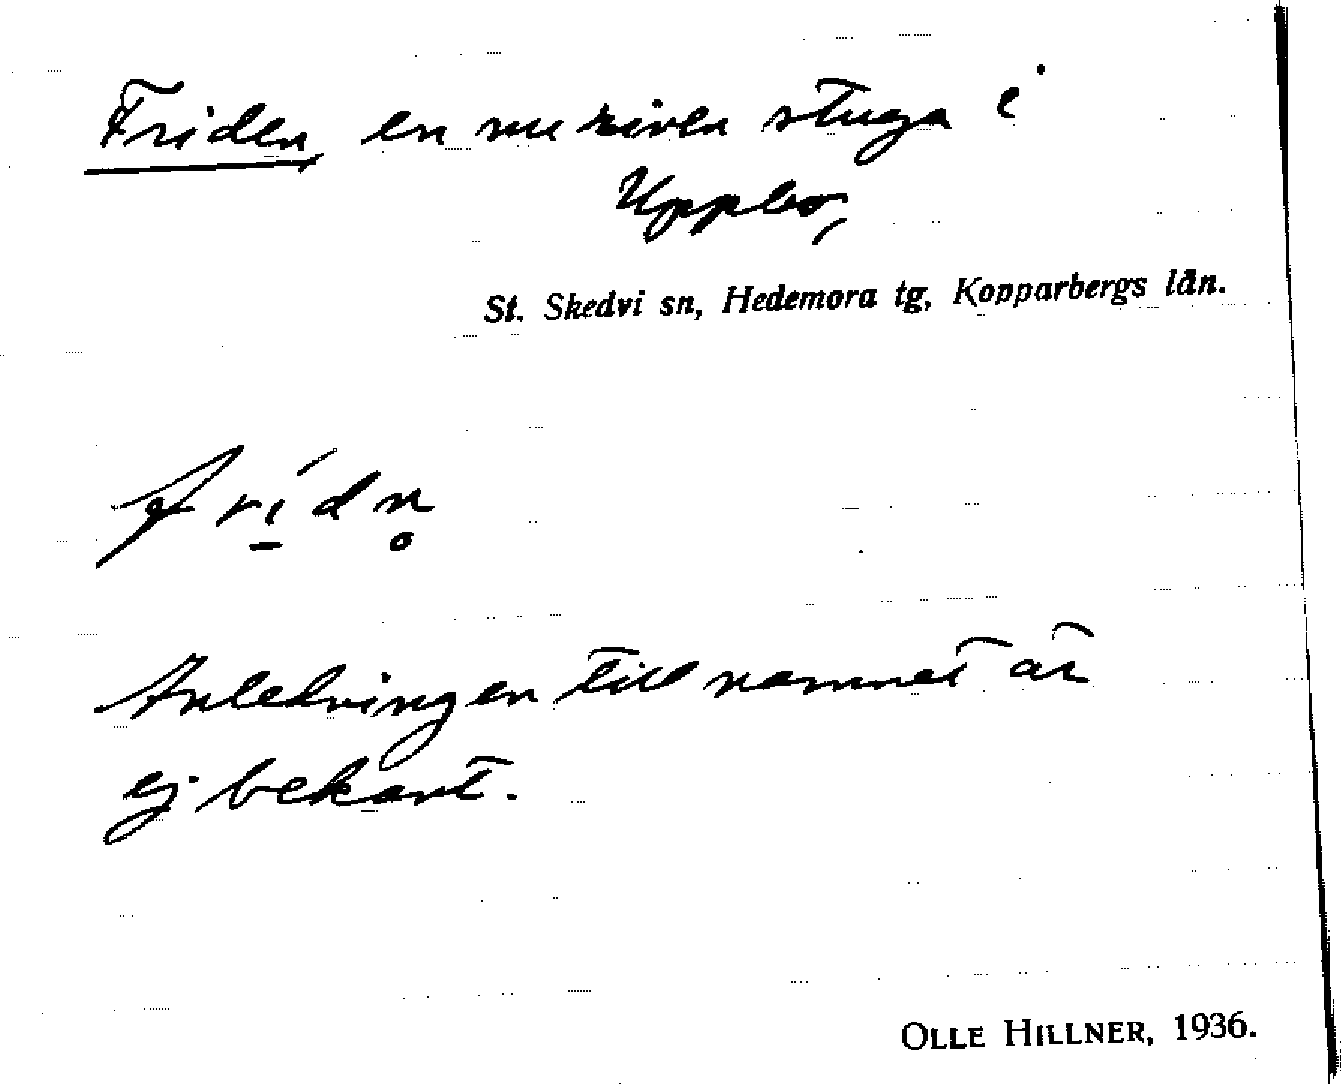 Friden, en nu riven stuga i
Uppbo,
St. Skedvi sn, Hedemora tg, Kopparbergs län.
frí̲dn̥
Anledningen till namnet är
ej bekant.
OLLE HILLNER, 1936.